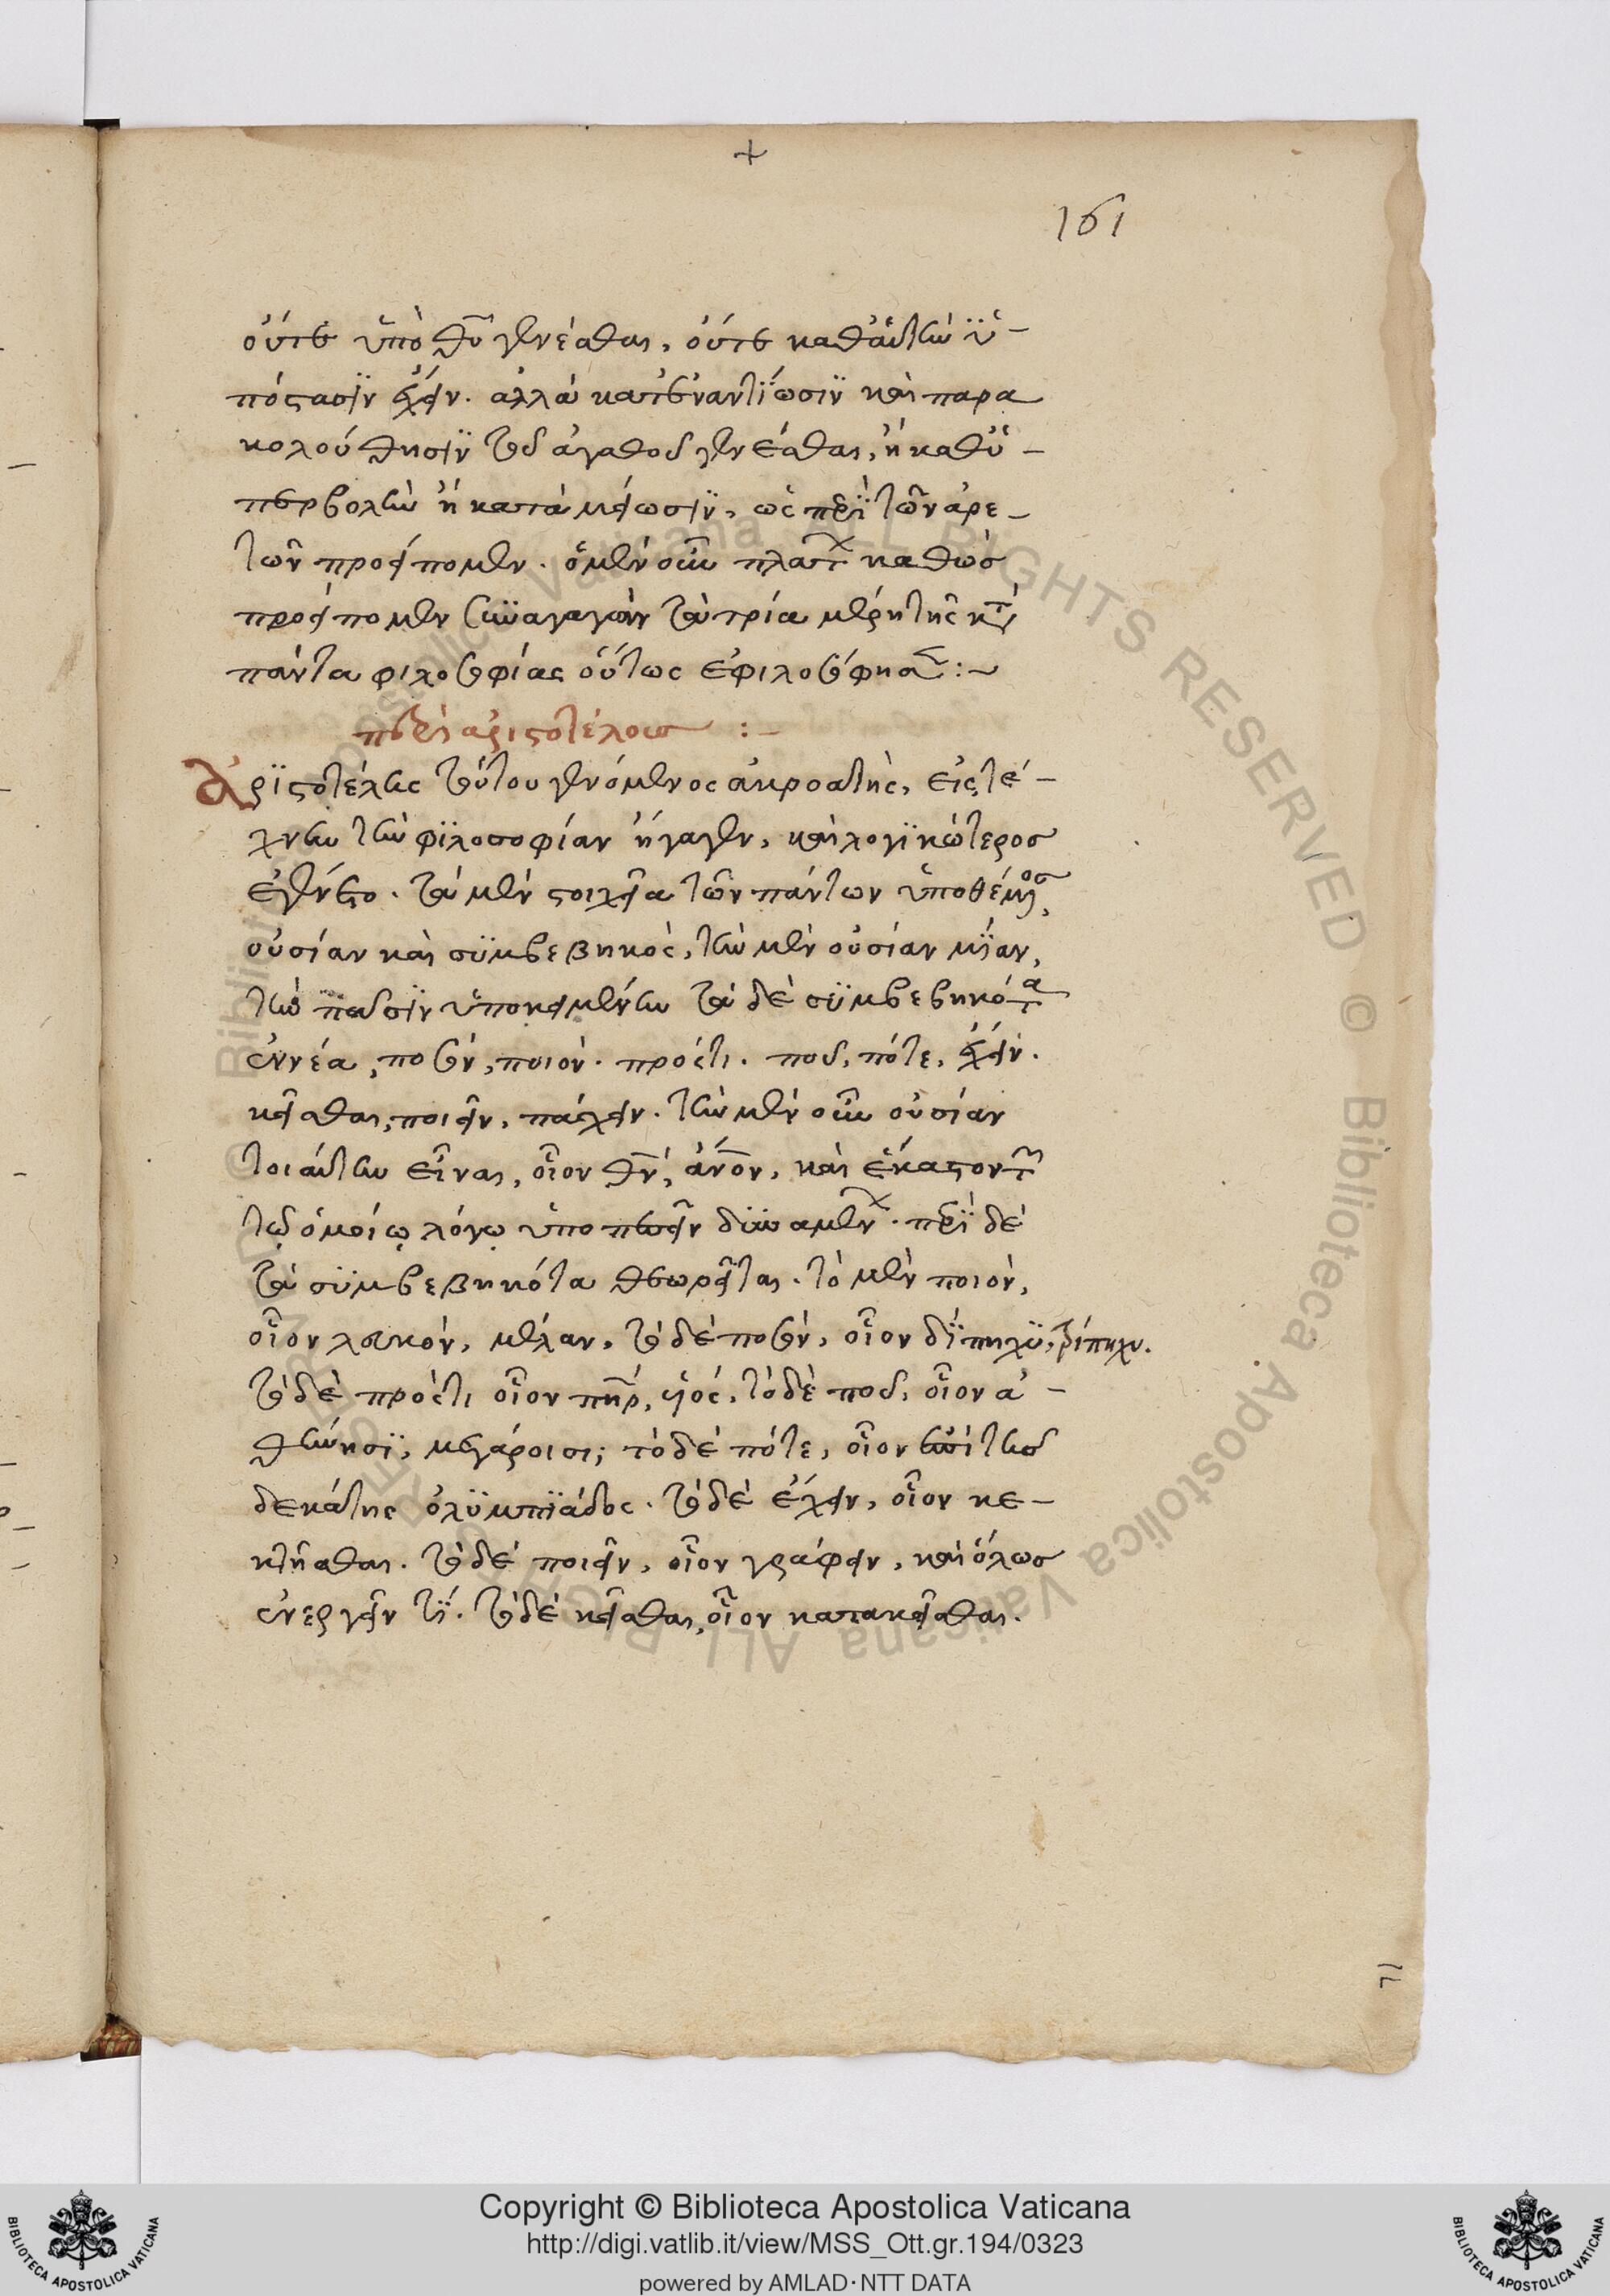 +
161
οὔτε ὑπὸ θῡ γενέσθαι, οὔτε καθ' αὑτὴν ὑ-
πόστασϊν ἔχειν. ἀλλὰ κατ' ἐναντΐωσιν καὶ παρα
κολούθησϊν τοῦ ἀγαθοῦ γενέσθαι, ἢ καθ' ὑ-
περβολὴν ἢ κατὰ μείωσϊν, ὡς περὶ τῶν ἀρε-
τῶν προείπομεν. ὁ μὲν οὖν πλάτ καθὼς
προείπομεν συναγαγὼν τὰ τρία μέρη τῆς κτ
πάντα φιλοσοφίας οὕτως ἐφιλοσόφησ :~
περὶ ἀριστοτέλους :-
Ἀρϊστοτέλης τούτου γενόμενος ἀκροατὴς, εἰς τέ-
χνην τὴν φϊλοσοφίαν ἤγαγεν, καὶ λογϊκώτερος
ἐγένετο. τὰ μὲν στοιχεῖα τῶν πάντων ὑποθέμνος,
οὐσίαν καὶ σϋμβεβηκός, τὴν μὲν οὐσίαν μΐαν,
τὴν πᾶσϊν ὑποκειμένην τὰ δὲ σϋμβεβηκότα
ἐννέα, ποσὸν, ποιὸν. πρός τι. ποῦ, πότε, ἔχειν.
κεῖσθαι, ποιεῖν, πάσχειν. τὴν μὲν οὖν οὐσίαν
τοιαύτην εἶναι, οἷον θν, ἄνον, καὶ ἕκαστον τ
τῷ ὁμοίῳ λόγῳ ὑποπεσεῖν δϋναμέν. περὶ δὲ
τὰ σϋμβεβηκότα θεωρεῖται. τὸ μὲν ποιὸν,
οἷον λευκὸν, μέλαν, τὸ δὲ ποσὸν, οἷον δΐπηχϋ, τρίπηχυ.
τὸ δὲ πρός τι οἷον πηρ, υἱός, τὸ δὲ ποῦ, οἷον ἀ-
θήνησϊ, μεγάροισι, τὸ δὲ πότε, οἷον ἐπὶ τῆς
δεκάτης ὀλϋμπϊάδος. τὸ δὲ ἔχειν, οἷον κε-
κτῆσθαι. τὸ δὲ ποιεῖν, οἷον γράφειν, καὶ ὅλως
ἐνεργεῖν τϊ. τὸ δὲ κεῖσθαι, οἷον κατακεῖσθαι.
Copyright © Biblioteca Apostolica Vaticana
http://digi.vatlib.it/view/MSS_Ott.gr.194/0323
powered by AMLAD·NTT DATA